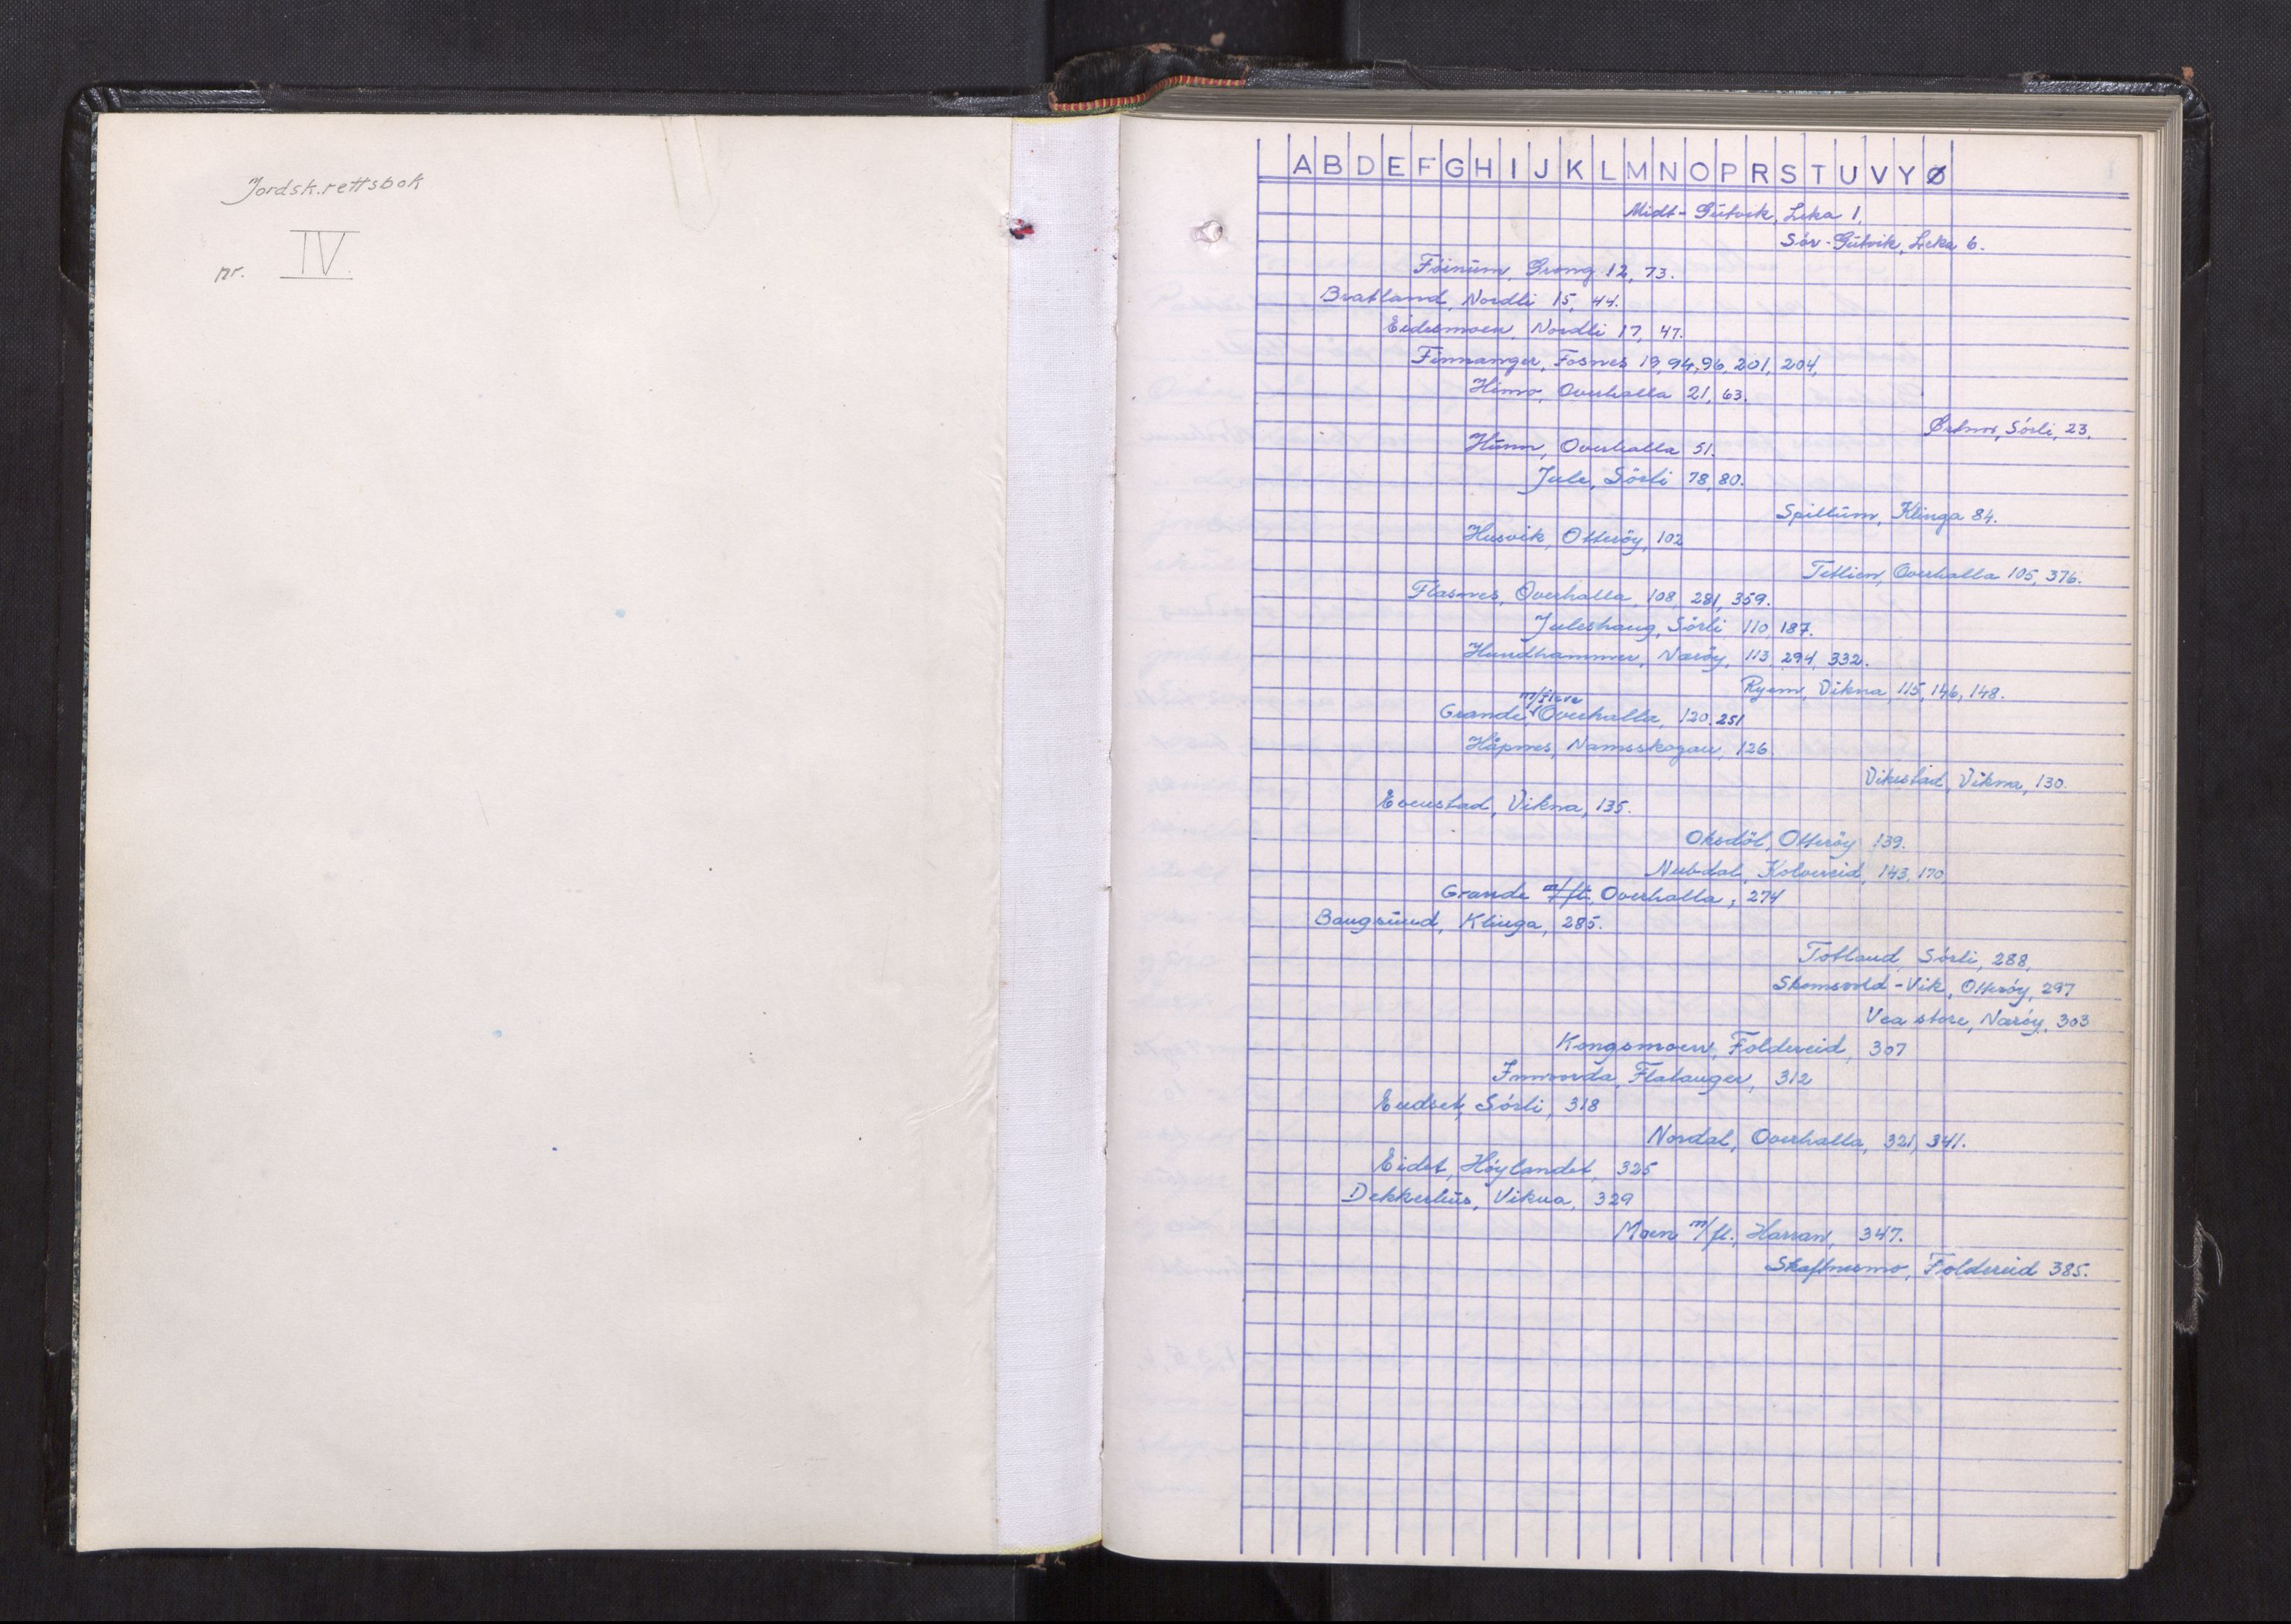 Jordsk.rettsbok
nr. IV
A B D E F G H I J K L M N O P R S T U V Y Ø
Midt-Gutvik, Leka 1.
Sör-Gutvik, Leka 6.
Föinum, Grong 12, 73.
Bratland, Nordli 15, 44.
Eidesmoen, Nordli 17, 47.
Finnanger, Fosnes 19, 94, 96, 201, 204,
Himo, Overhalla 21, 63.
Sörli, 23.
Hunn, Overhalla 51.
Jule, Sörli 78, 80.
Spillum, Klinga 84.
Husvik, Otteröy, 102
Tetlien, Overhalla 105, 376.
Flasnes, Overhalla, 108, 281, 359.
Juleshaug, Sörli, 110, 187.
Hundhammer, Næröy, 113, 294, 332.
Ryem, Vikna, 115, 146, 148.
Grande, m/flere Overhalla, 120, 251
Håpnes, Namsskogan, 126.
Vikestad, Vikna, 130.
Evenstad, Vikna, 135.
Oksdöl, Otteröy 139.
Nubdal, Kolvereid, 143, 170,
Grande m/fl. Overhalla, 274
Bangsund, Klinga, 285.
Totland, Sörli, 288,
Skomsvold-Vik, Otteröy, 297
Vea store, Næröy, 303
Kongsmoen, Foldereid, 307
Innvorda, Flatanger, 312
Eidset, Sörli, 318
Nordal, Overhalla, 321, 341.
Eidet, Höylandet, 325
Dekkerhus, Vikna, 329
Moen m/fl., Harran, 347.
Skaftnesmo, Foldereid 385.